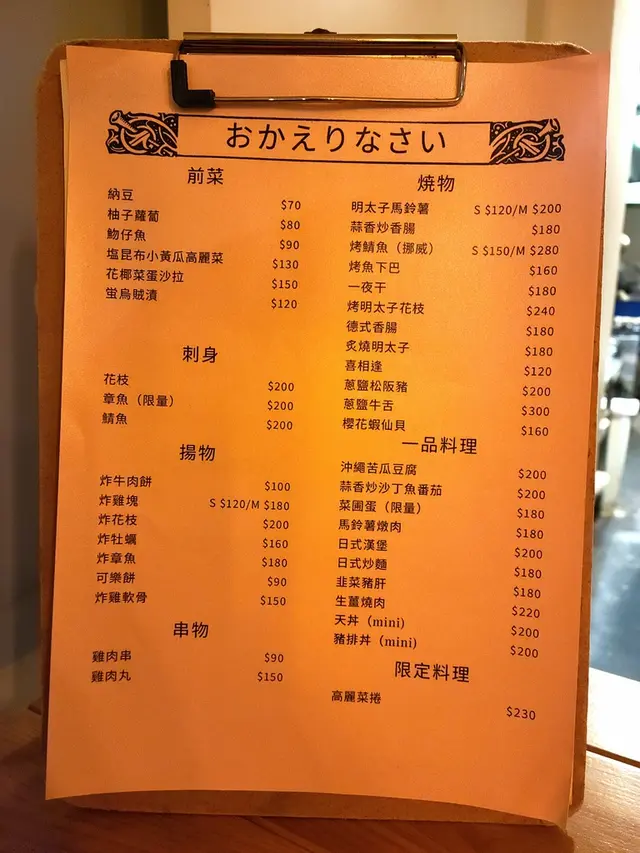 おかえりなさい
前菜
納豆 $70
柚子蘿蔔 $80
魩仔魚 $90
塩昆布小黃瓜高麗菜 $130
花椰菜蛋沙拉 $150
蛍烏賊漬 $120
刺身
花枝 $200
章魚（限量） $200
鯖魚 $200
揚物
炸牛肉餅 $100
炸雞塊 S $120/M $180
炸花枝 $200
炸牡蠣 $160
炸章魚 $180
可樂餅 $90
炸雞軟骨 $150
串物
雞肉串 $90
雞肉丸 $150
焼物
明太子馬鈴薯 S $120/M $200
蒜香炒香腸 $180
烤鯖魚（挪威） S $150/M $280
烤魚下巴 $160
一夜干 $180
烤明太子花枝 $240
德式香腸 $180
炙燒明太子 $180
喜相逢 $120
蔥鹽松阪豬 $200
蔥鹽牛舌 $300
櫻花蝦仙貝 $160
一品料理
沖繩苦瓜豆腐 $200
蒜香炒沙丁魚番茄 $200
菜圃蛋（限量） $180
馬鈴薯燉肉 $180
日式漢堡 $200
日式炒麵 $180
韭菜豬肝 $180
生薑燒肉 $220
天丼（mini） $200
豬排丼（mini） $200
限定料理
高麗菜捲 $230